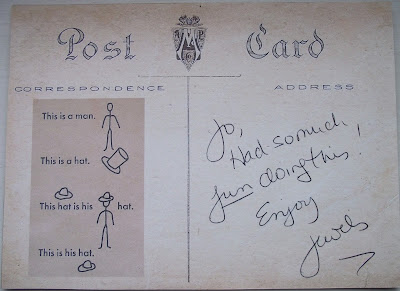 Post Card
CORRESPONDENCE
ADDRESS
This is a man.
This is a hat.
This hat is his hat.
This is his hat.
Jo,
Had so much
fun doing this!
Enjoy
Jewels